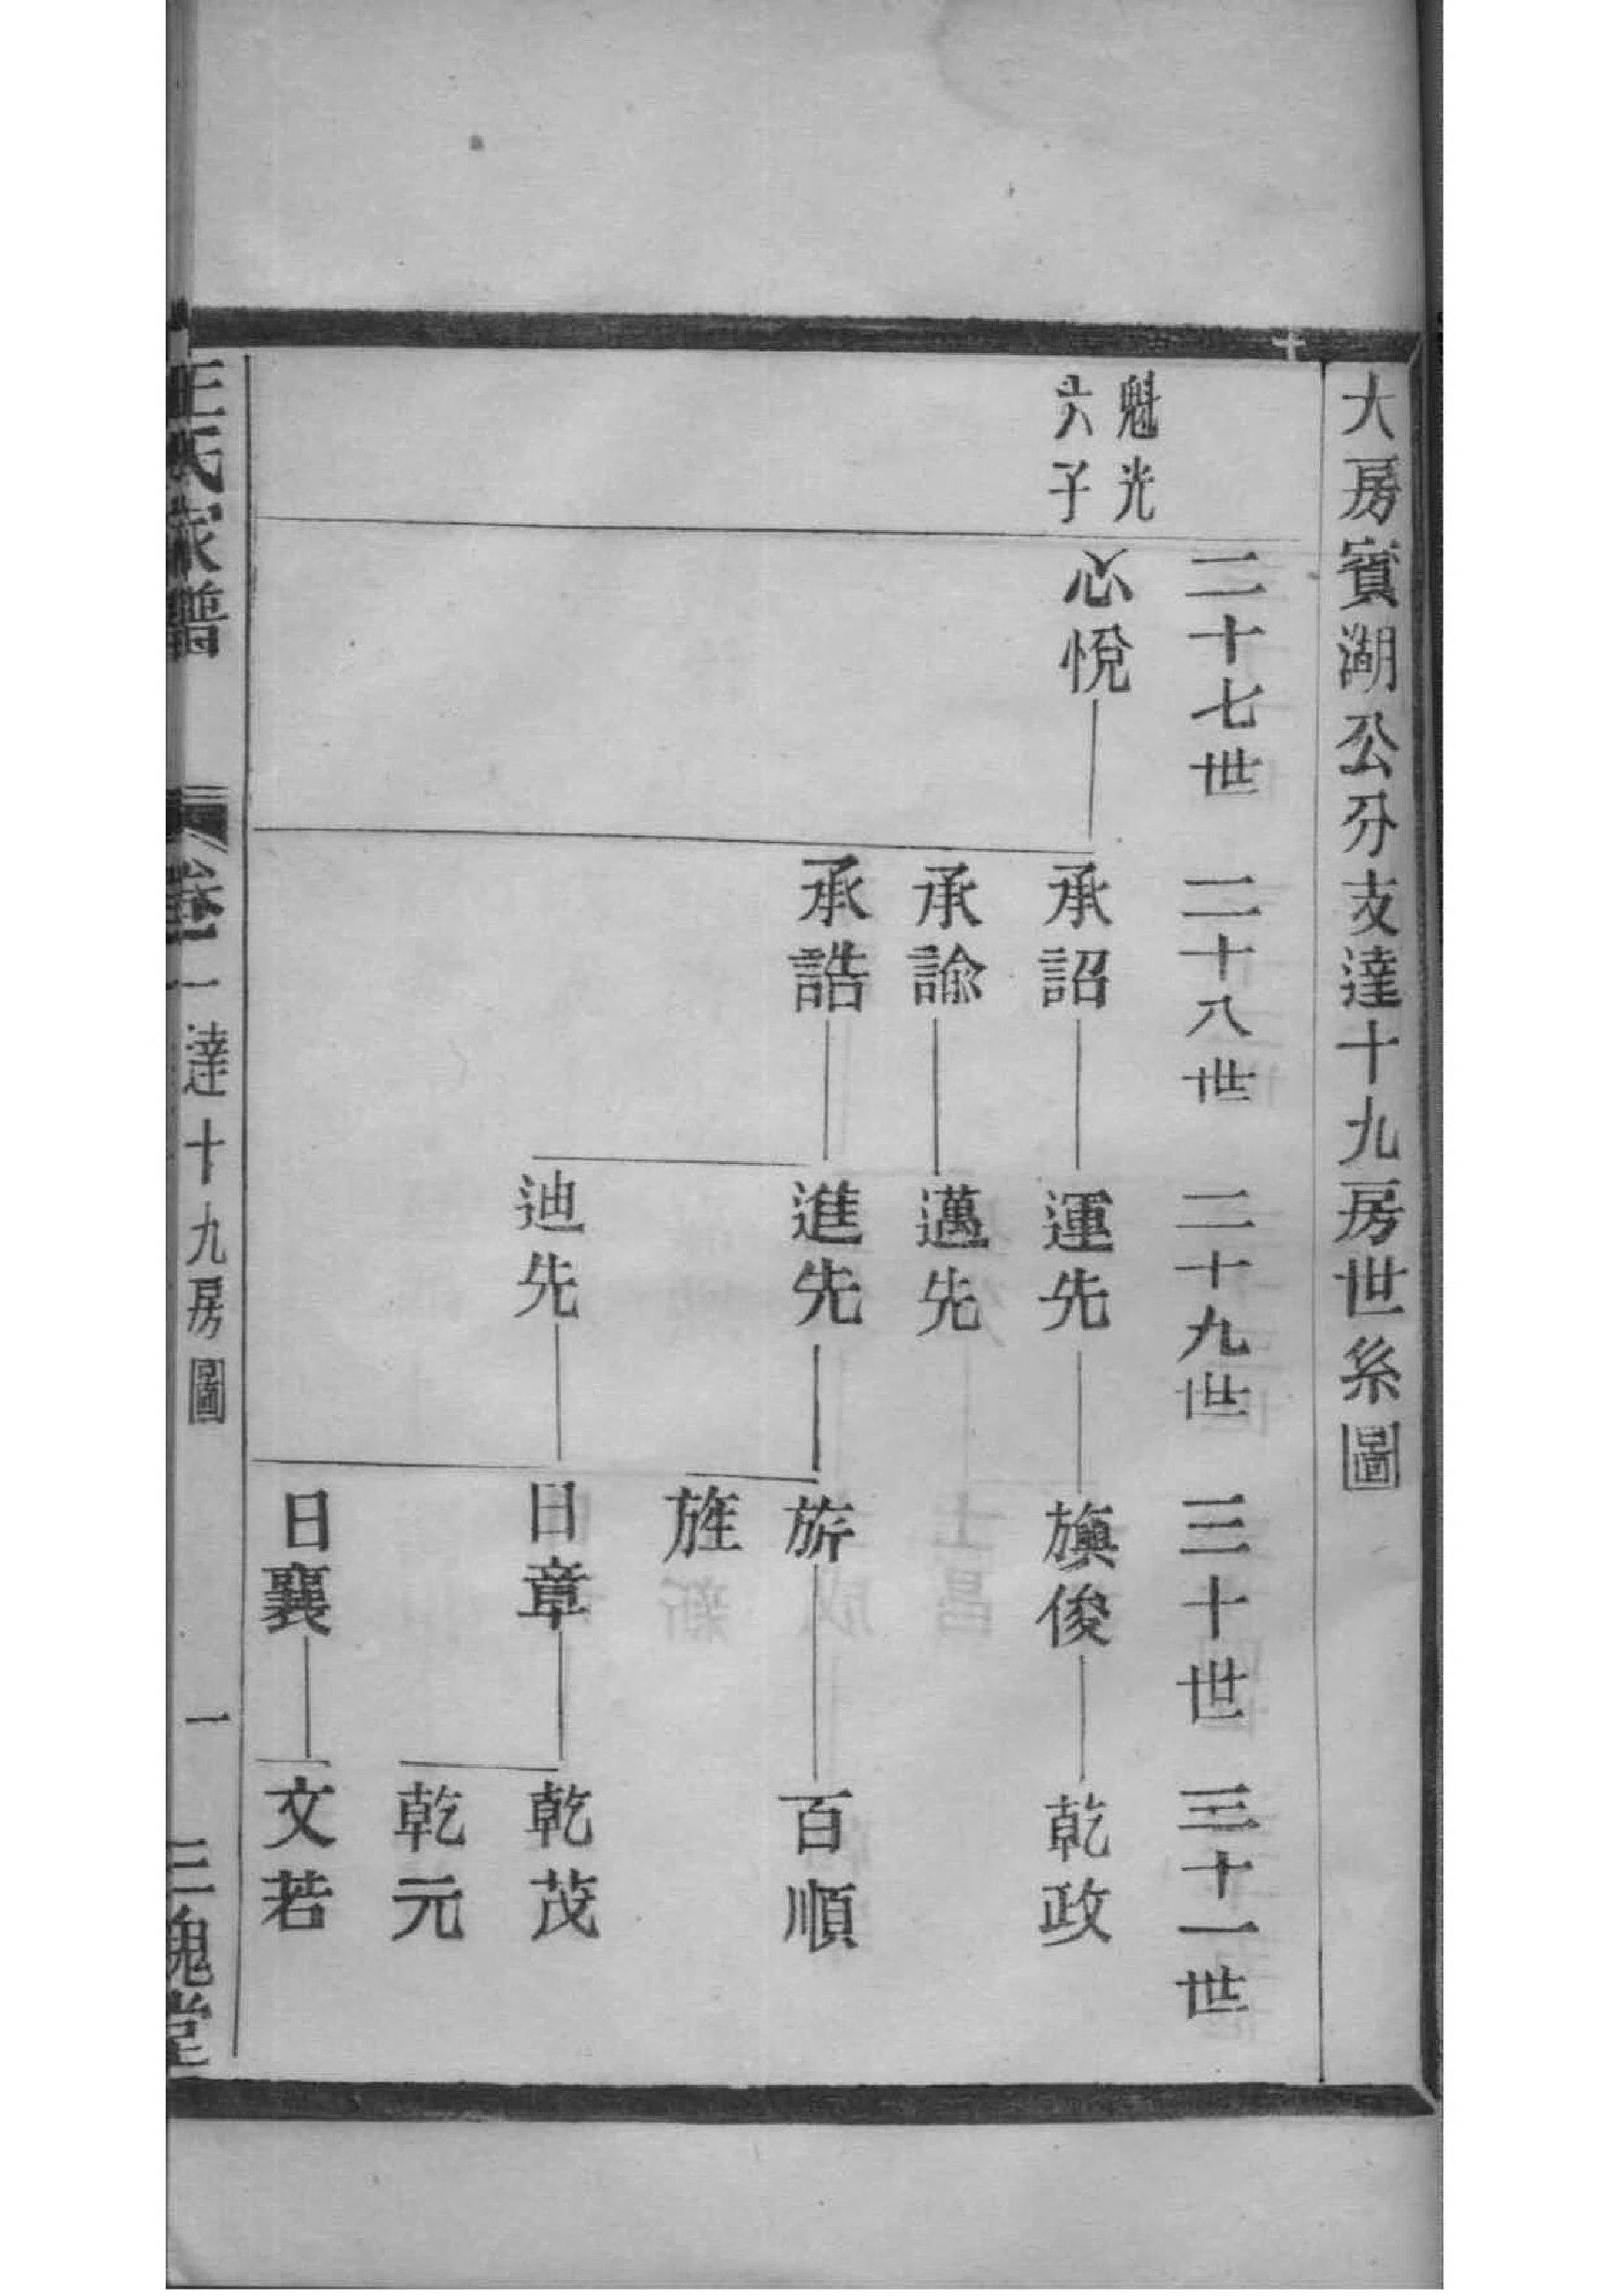 大房賓湖公分支達十九房世系圖
二十七世
二十八世
二十九世
三十世
三十一世
魁光
六子
心悅
承詔
運先
旟俊
乾政
承諭
邁先
承誥
進先
旂
百順
旌
迪先
日章
乾茂
乾元
日襄
文若
王氏家譜
卷一
達十九房圖
一
三槐堂